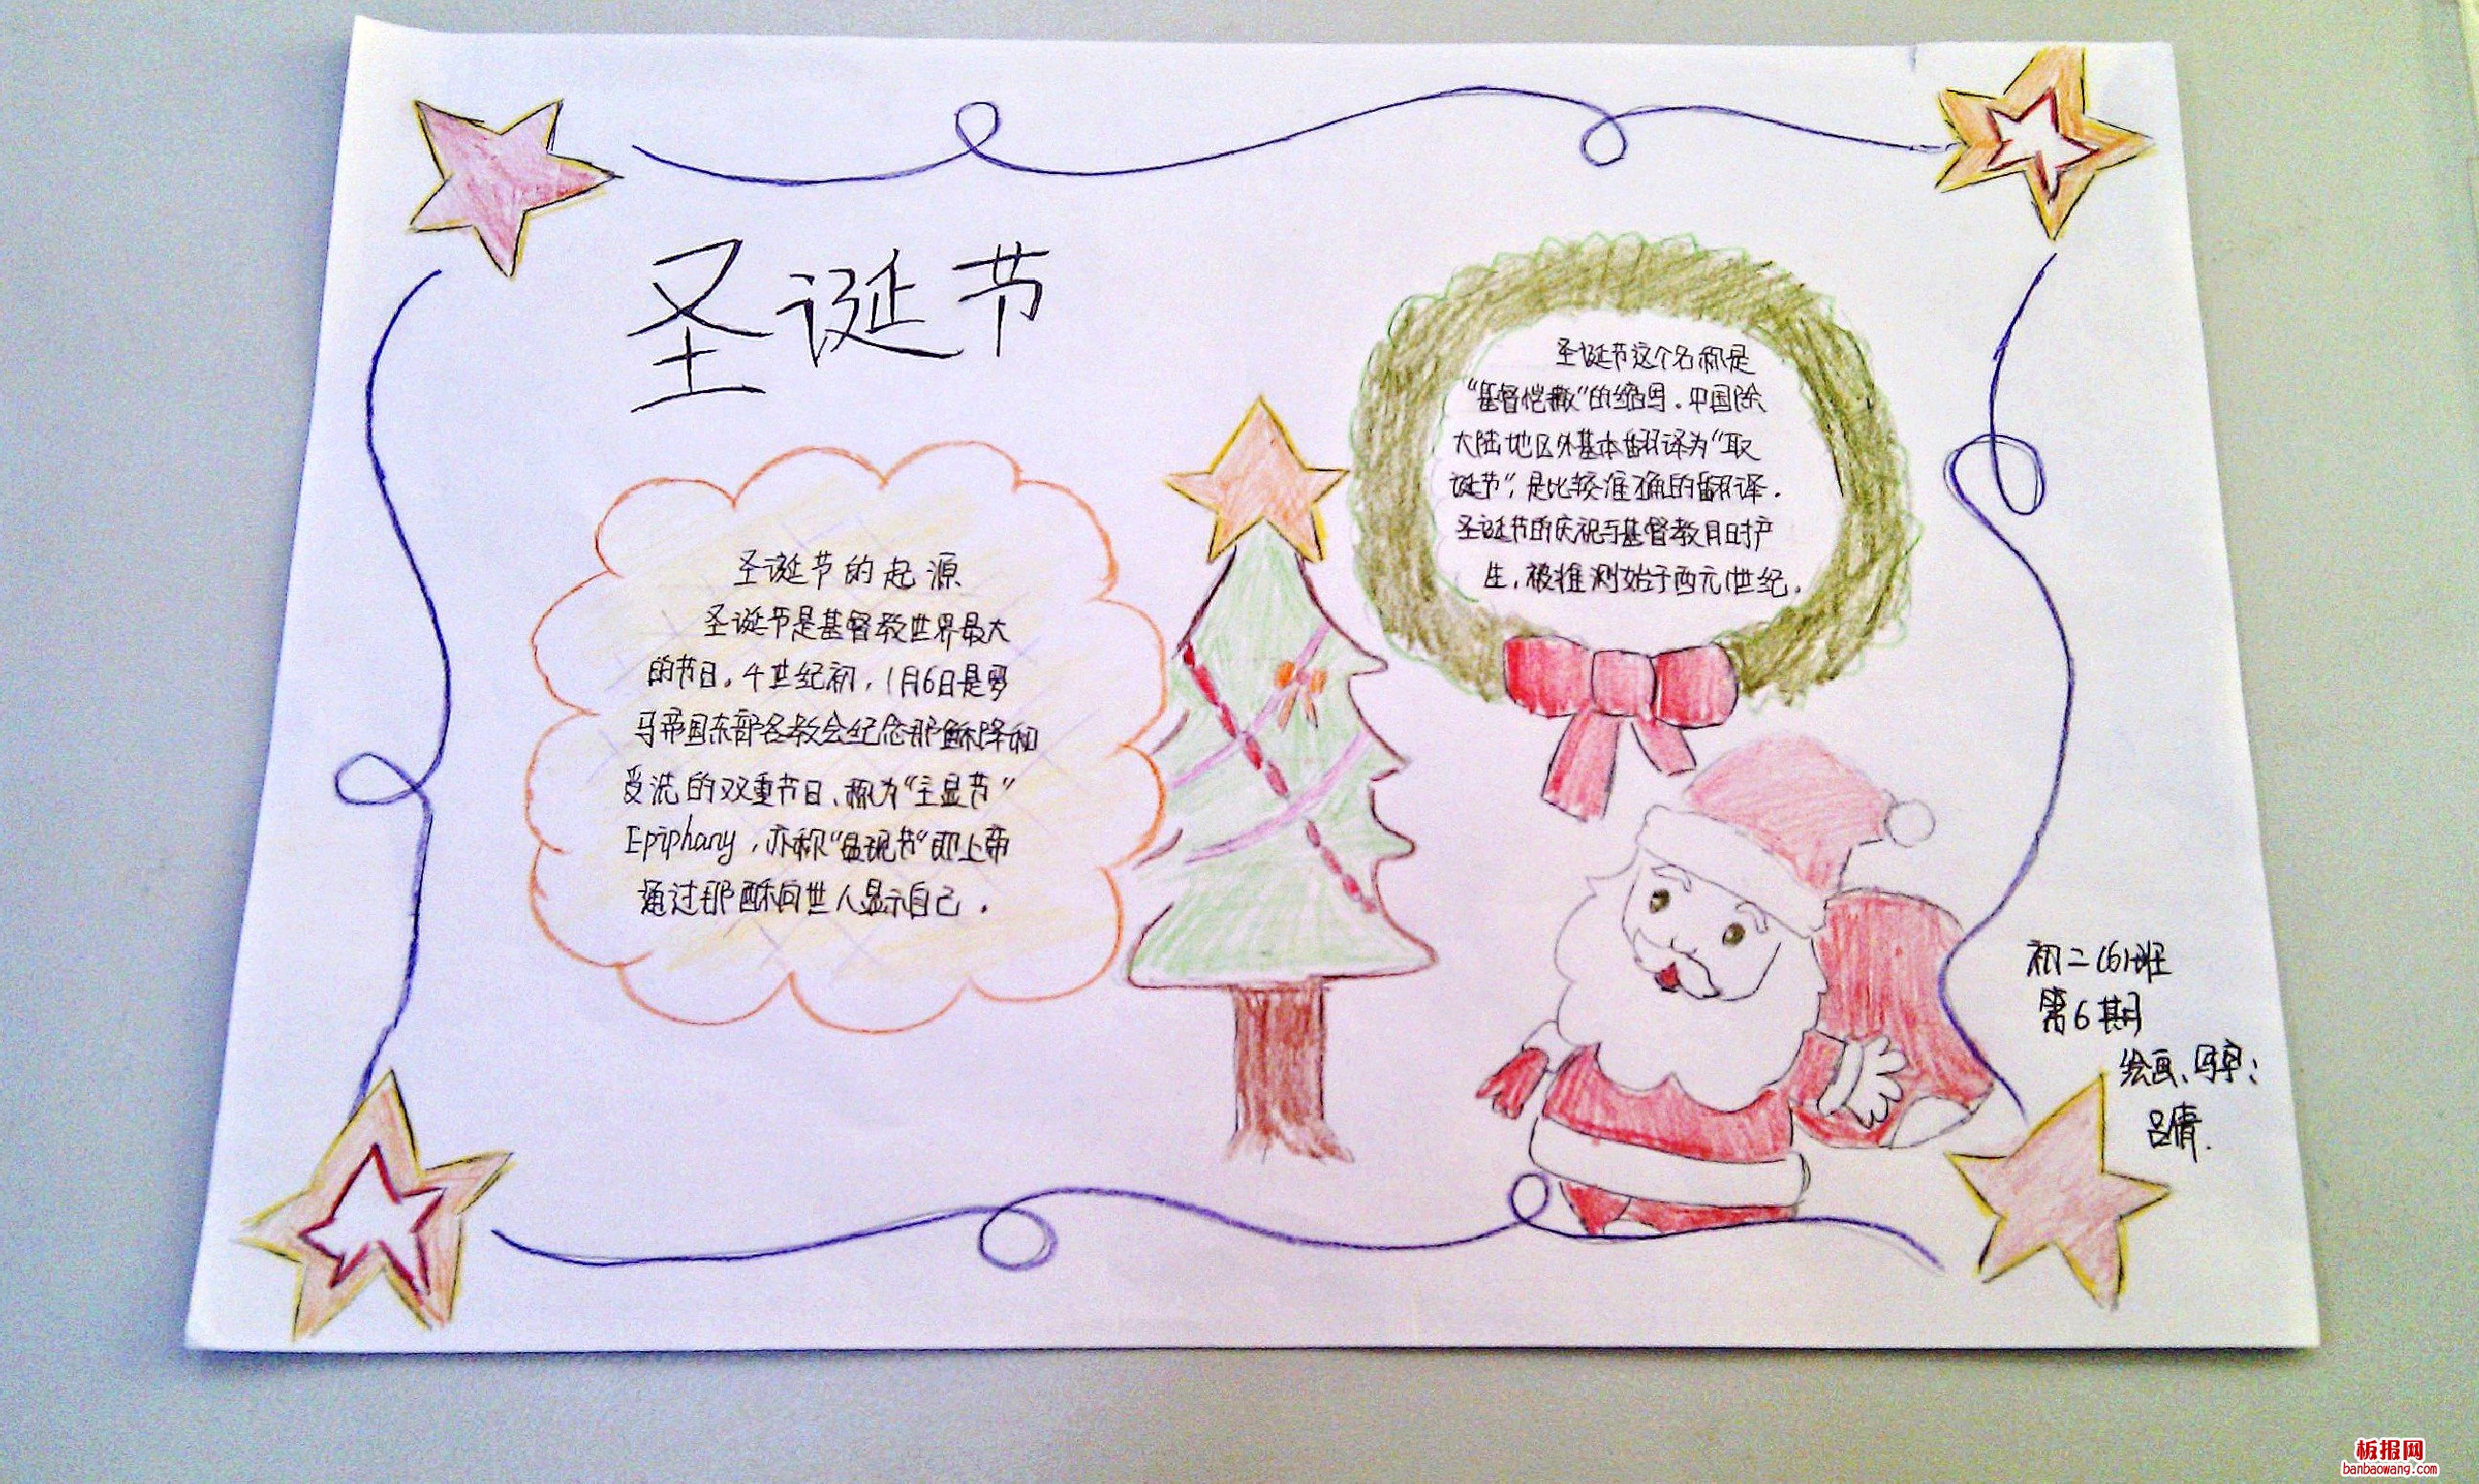 圣诞节
圣诞节的起源
圣诞节是基督教世界最大
的节日。4世纪初,1月6日是罗
马帝国东部各教会纪念耶稣降和
受洗的双重节日、称为“主显节”
Epiphany,亦称“显现节”即上帝
通过耶稣向世人显示自己。
圣诞节这个名称是
“基督恺撒”的缩写.中国除
大陆地区外基本翻译为“取
诞节”,是比较准确的翻译.
圣诞节的庆祝与基督教同时产
生,被推测始于西元1世纪.
初二(6)班
第6期
绘画、写字:
吕倩.
板报网
banbaowang.com